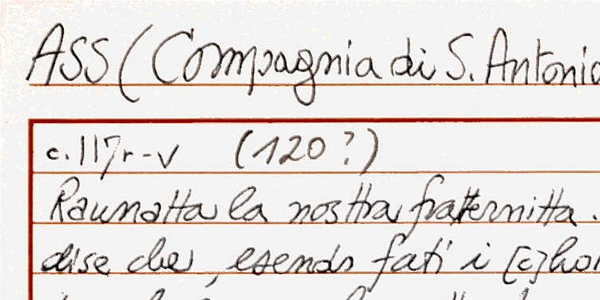 ASS (Compagnia di S. Antonio
c. 117r-v (120?)
Raunatta la nostra fratternitta.
dise che, esendo fati i [c]hon